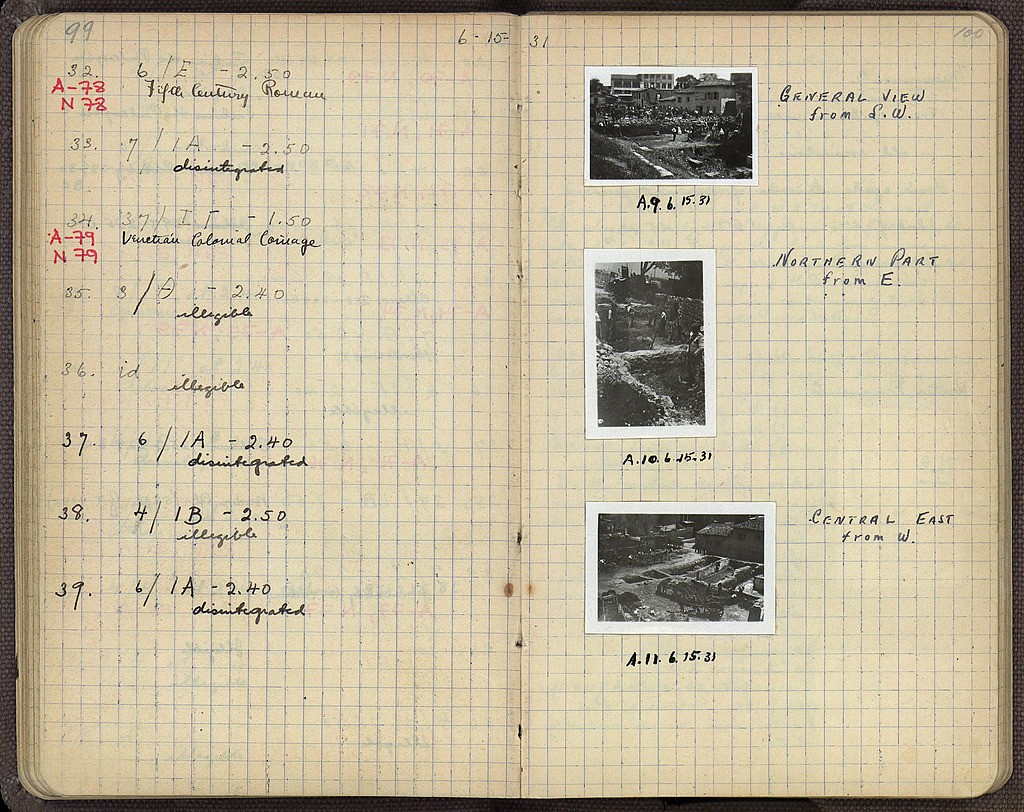 99
6-15-31
32. 6/E -2.50
A-78
Fifth Century Roman
N 78
33. 7/1A -2.50
disintegrated
34. 37/ΙΓ -1.50
A-79
Venetian Colonial Coinage
N 79
35. 3/Θ -2.40
illegible
36. id
illegible
37. 6/1A -2.40
disintegrated
38. 4/1B -2.50
illegible
39. 6/1A -2.40
disintegrated
100
GENERAL VIEW
from S.W.
A.9. 6.15.31
NORTHERN PART
from E.
A.10. 6.15.31
CENTRAL EAST
from W.
A.11. 6.15.31